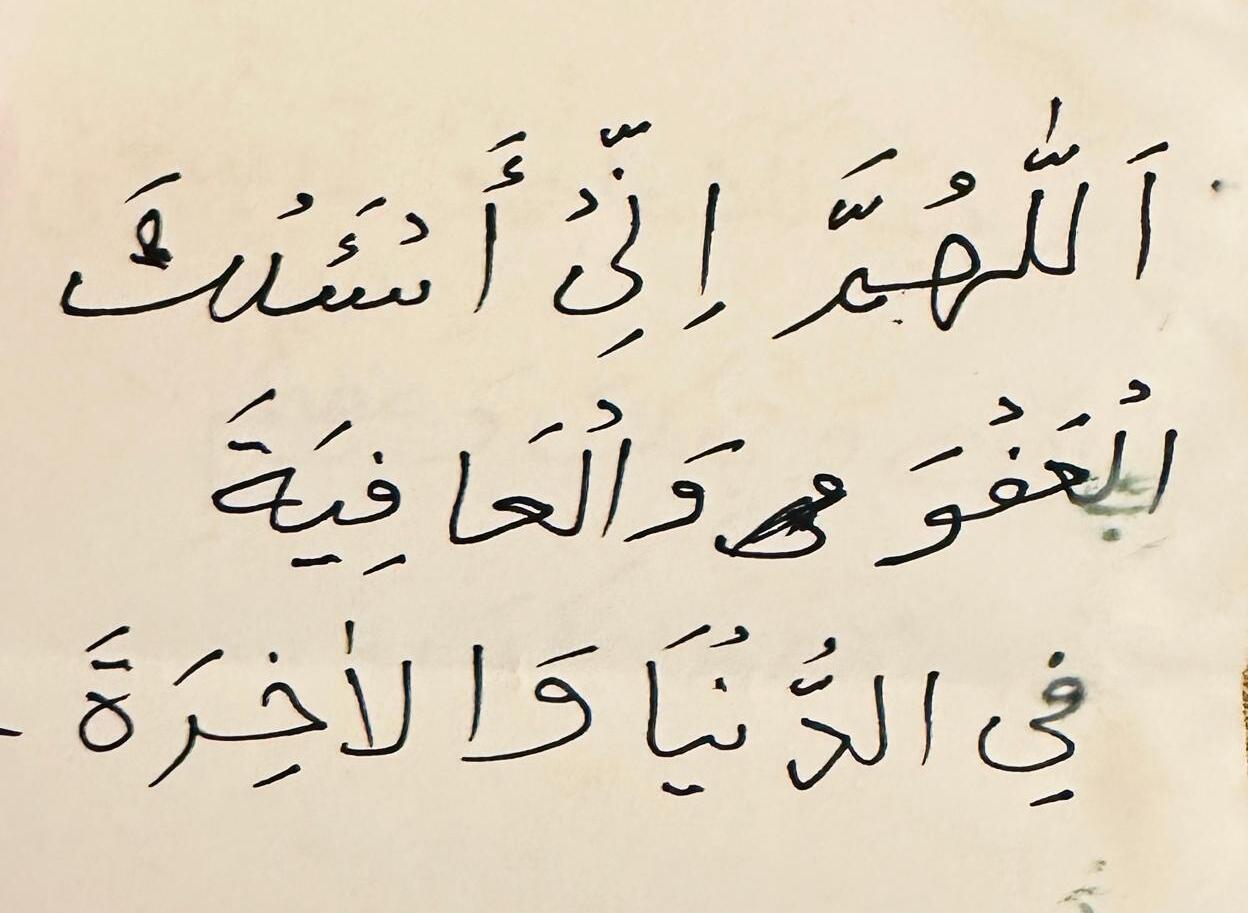 اَللّٰهُمَّ اِنِّيْ أَسْئَلُكَ
الْعَفْوَ وَالْعَافِيَةَ
فِي الدُّنْيَا وَالاٰخِرَةَ